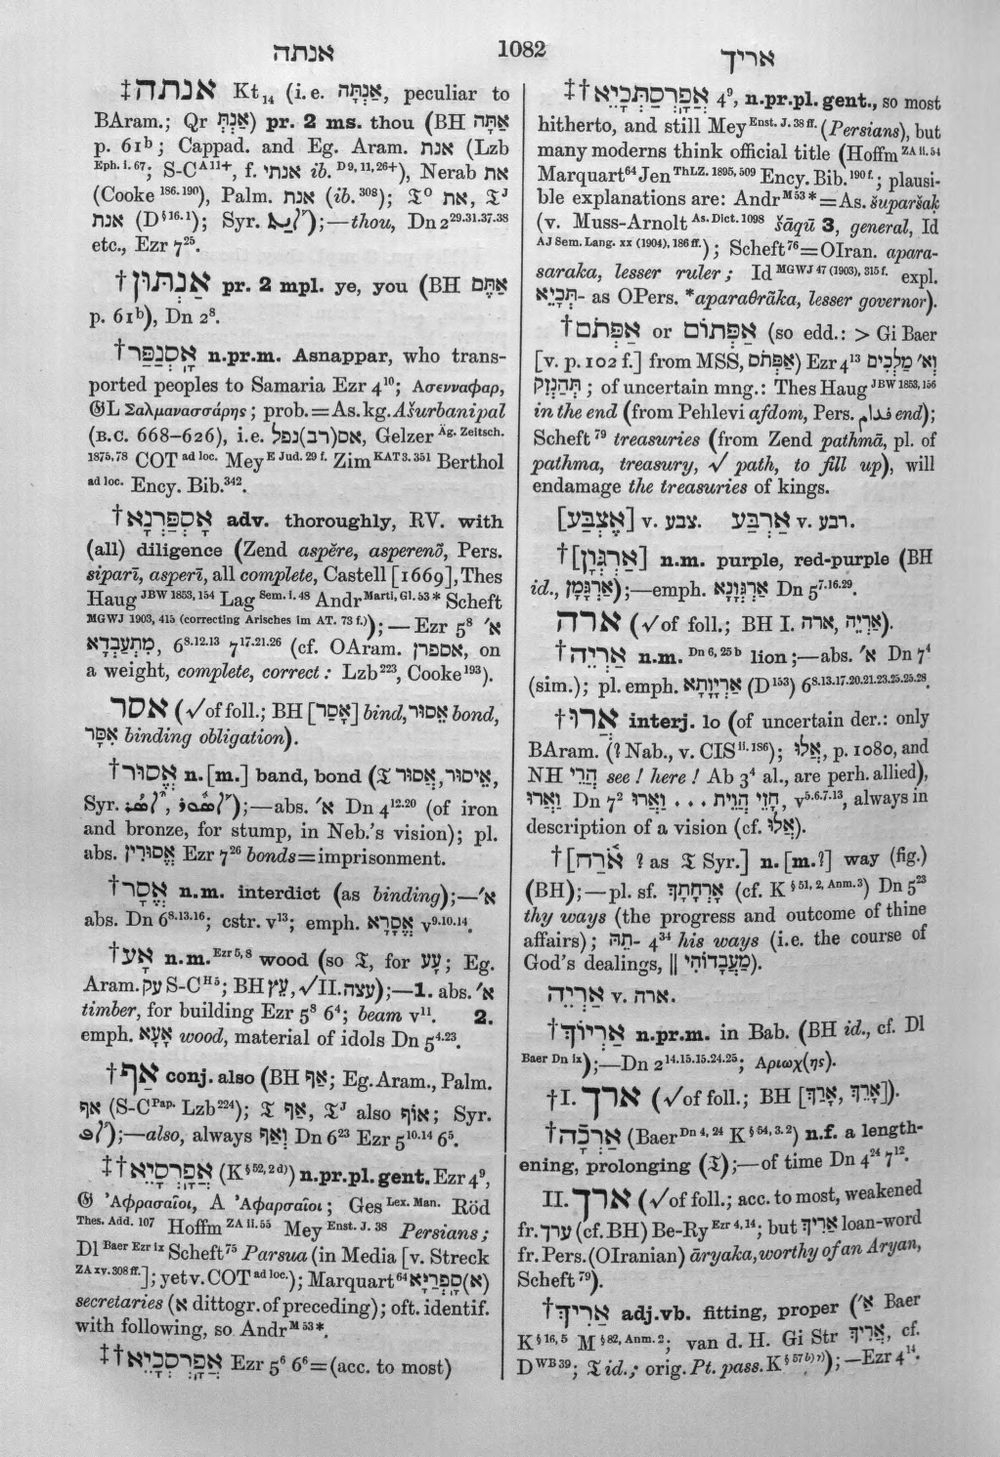 אנתה 1082 אריך
‡אנתה Kt14 (i.e. אַנְתָּה, peculiar to
BAram.; Qr אַנְתְּ) pr. 2 ms. thou (BH אַתָּה
p. 61b; Cappad. and Eg. Aram. אנת (Lzb
Eph. i. 67; S-C A 11+, f. אנתי ib. D 9, 11, 26+), Nerab את
(Cooke 186. 190), Palm. אנת (ib. 308); 𝔗O את, 𝔗J
אנת (D § 16. 1); Syr.);—thou, Dn 2 29.31.37.38
etc., Ezr 7 25.
†אַנְתּוּן pr. 2 mpl. ye, you (BH אַתֶּם
p. 61b), Dn 2 8.
†אָסְנַפַּר n.pr.m. Asnappar, who trans-
ported peoples to Samaria Ezr 4 10; Ασενναφαρ,
𝔊L Σαλμανασσάρης; prob.=As.kg. Ašurbanipal
(B.C. 668–626), i.e. אס(רב)נפל, Gelzer Äg. Zeitsch.
1875, 78 COT ad loc. Mey E Jud. 29 f. Zim KAT 3. 351 Berthol
ad loc. Ency. Bib. 342.
†אָסְפַּרְנָא adv. thoroughly, RV. with
(all) diligence (Zend aspĕre, asperenō, Pers.
siparī, asperī, all complete, Castell [1669], Thes
Haug JBW 1853, 154 Lag Sem. i. 48 Andr Marti, Gl. 53 * Scheft
MGWJ 1903, 415 (correcting Arisches im AT. 73 f.));—Ezr 5 8 א׳
מִתְעַבְדָא, 6 8.12.13 7 17.21.26 (cf. OAram. אספרן, on
a weight, complete, correct: Lzb 223, Cooke 193).
אסר (√of foll.; BH [אָסַר] bind, אֵסוּר bond,
אִסָּר binding obligation).
†אֱסוּר n.[m.] band, bond (𝔗 אֱסוּר, אֵיסוּר,
Syr.);—abs. א׳ Dn 4 12.20 (of iron
and bronze, for stump, in Neb.'s vision); pl.
abs. אֱסוּרִין Ezr 7 26 bonds=imprisonment.
†אֱסָר n.m. interdict (as binding);—א׳
abs. Dn 6 8.13.16; cstr. v 13; emph. אֱסָרָא v 9.10.14.
†אָע n.m. Ezr 5, 8 wood (so 𝔗, for עָע; Eg.
Aram. עק S-C H 5; BH עֵץ, √II. עצה);—1. abs. א׳
timber, for building Ezr 5 8 6 4; beam v 11. 2.
emph. אָעָא wood, material of idols Dn 5 4.23.
†אַף conj. also (BH אַף; Eg. Aram., Palm.
אף (S-C Pap. Lzb 224); 𝔗 אַף, 𝔗J also אוֹף; Syr.
);—also, always וְאַף Dn 6 23 Ezr 5 10.14 6 5.
‡†אֲפָרְסָיֵא (K § 52, 2 d)) n.pr.pl.gent. Ezr 4 9,
𝔊 Ἀφρασαῖοι, A Ἀφαρσαῖοι; Ges Lex. Man. Röd
Thes. Add. 107 Hoffm ZA ii. 55 Mey Enst. J. 38 Persians;
Dl Baer Ezr ix Scheft 75 Parsua (in Media [v. Streck
ZA xv. 308 ff.]; yet v. COT ad loc.); Marquart 64 (א)סָפְרַיָּא
secretaries (א dittogr. of preceding); oft. identif.
with following, so Andr M 53 *.
‡†אֲפַרְסְכָיֵא Ezr 5 6 6 6=(acc. to most)
‡†אֲפַרְסַתְּכָיֵא 4 9, n.pr.pl.gent., so most
hitherto, and still Mey Enst. J. 38 ff. (Persians), but
many moderns think official title (Hoffm ZA ii. 54
Marquart 64 Jen ThLZ. 1895, 509 Ency. Bib. 190 f.; plausi-
ble explanations are: Andr M 53 *=As. šuparšak
(v. Muss-Arnolt As. Dict. 1098 šāqū 3, general, Id
AJ Sem. Lang. xx (1904), 186 ff.); Scheft 76=OIran. apara-
saraka, lesser ruler; Id MGWJ 47 (1903), 315 f. expl.
תְּכָיֵא- as OPers. *aparaθrāka, lesser governor).
†אַפְּתוֹם or אַפְּתֹם (so edd.: > Gi Baer
[v. p. 102 f.] from MSS, אַפְּתֹם) Ezr 4 13 וְא׳ מַלְכִים
תְּהַנְזִק; of uncertain mng.: Thes Haug JBW 1853, 156
in the end (from Pehlevi afdom, Pers. فدام end);
Scheft 79 treasuries (from Zend pathmã, pl. of
pathma, treasury, √ path, to fill up), will
endamage the treasuries of kings.
[אֶצְבַּע] v. צבע. אַרְבַּע v. רבע.
†[אַרְגְּוָן] n.m. purple, red-purple (BH
id., אַרְגָּמָן);—emph. אַרְגְּוָנָא Dn 5 7.16.29.
ארה (√of foll.; BH I. ארה, אַרְיֵה).
†אַרְיֵה n.m. Dn 6, 25 b lion;—abs. א׳ Dn 7 4
(sim.); pl. emph. אַרְיָוָתָא (D 153) 6 8.13.17.20.21.23.25.25.28.
†אֲרוּ interj. lo (of uncertain der.: only
BAram. (? Nab., v. CIS ii. 186); אֲלוּ, p. 1080, and
NH הֲרֵי see! here! Ab 3 4 al., are perh. allied),
וַאֲרוּ Dn 7 2 חָזֵי הֲוֵית ... וַאֲרוּ, v 5.6.7.13, always in
description of a vision (cf. אֲלוּ).
†[אֹרַח ? as 𝔗 Syr.] n. [m.?] way (fig.)
(BH);—pl. sf. אָרְחָתָךְ (cf. K § 51, 2, Anm. 3) Dn 5 23
thy ways (the progress and outcome of thine
affairs); תֵהּ- 4 34 his ways (i.e. the course of
God's dealings, ‖ מַעֲבָדוֹהִי).
אַרְיֵה v. ארה.
†אַרְיוֹךְ n.pr.m. in Bab. (BH id., cf. Dl
Baer Dn ix);—Dn 2 14.15.15.24.25; Αριωχ(ης).
†I. ארך (√of foll.; BH [אָרַךְ, אָרֵךְ]).
†אַרְכָה (Baer Dn 4, 24 K § 54, 3. 2) n.f. a length-
ening, prolonging (𝔗);—of time Dn 4 24 7 12.
II. ארך (√of foll.; acc. to most, weakened
fr. ערך (cf. BH) Be-Ry Ezr 4, 14; but אֲרִיךְ loan-word
fr. Pers. (OIranian) āryaka, worthy of an Aryan,
Scheft 79).
†אֲרִיךְ adj.vb. fitting, proper (א׳ Baer
K § 16, 5 M § 82, Anm. 2; van d. H. Gi Str אֲרִיךְ, cf.
D WB 39; 𝔗 id.; orig. Pt. pass. K § 57 b) γ));—Ezr 4 14.